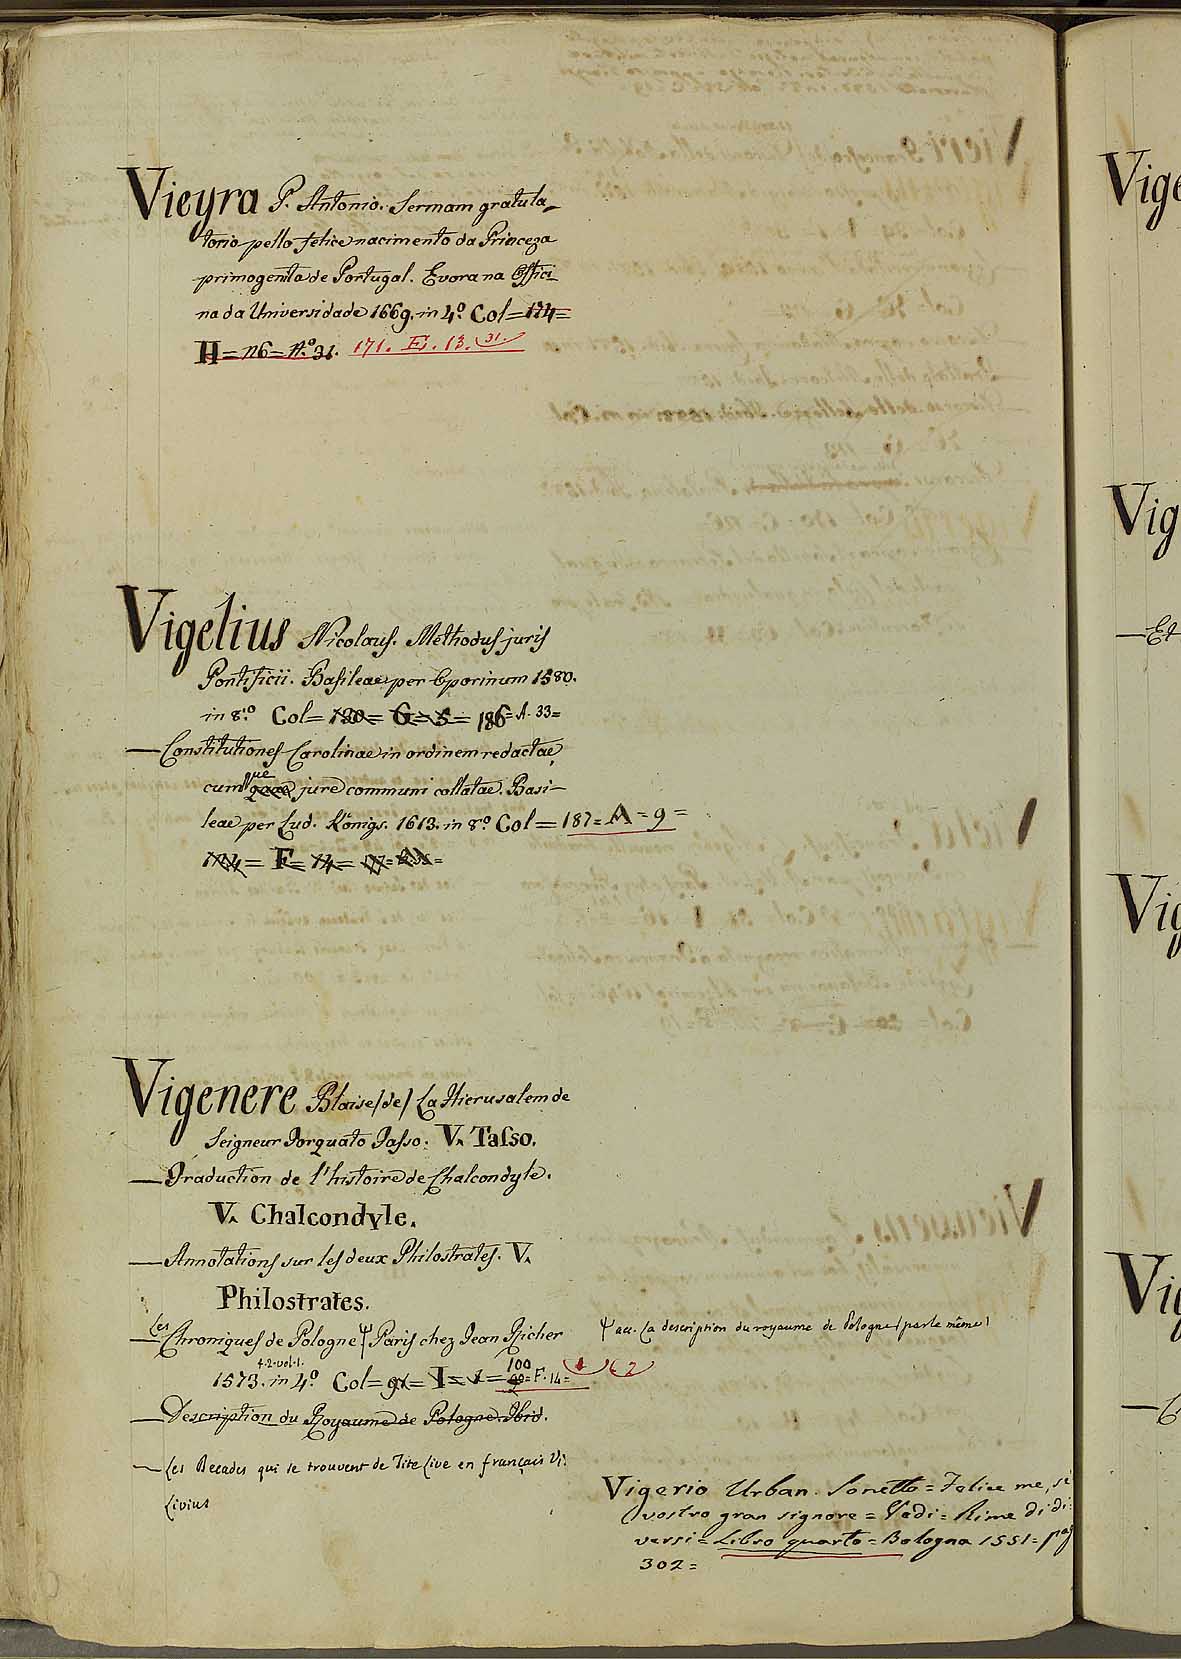 Vieyra P. Antonio. Sermam gratula-
torio pello felice nacimento da Princeza
primogenita de Portugal. Evora na Offici-
na da Universidade 1669. in 4º Col=174=
H=n6=Nº 31. 171. E. 13. 31.
Vigelius Nicolaus. Methodus juris
Pontificii. Basileae per Oporinum 1580.
in 8º Col= 130= G= 5= 186= A. 33=
— Constitutiones Carolinae in ordinem redactae,
cumque jure communi collatae. Basi-
leae per Lud. Königs. 1613. in 8º Col= 187= A= 9=
= F= 14=
Vigenere Blaise /de/ La Hierusalem de
Seigneur Torquato Tasso. V. Tasso.
— Traduction de l'histoire de Chalcondyle.
V. Chalcondyle.
— Annotations sur les deux Philostrates. V.
Philostrates.
— Les Chroniques de Pologne Ψ Paris chez Jean Richer
1573. in 4º 2. vol. 1. Col= 91= I= 1= 100 = F. 14= 1 2
— Description du Royaume de Pologne. Ibid.
— Les Decades qui se trouvent de Tite Live en français V:
Livius
Ψ au. La description du royaume de Pologne (par le même)
Vigerio Urban. Sonetto= Felice me, se
vostro gran signore= Vedi= Rime di di:
versi= Libro quarto= Bologna 1551= pag
302=
Vige
Vig
— Et
Vig
Vig